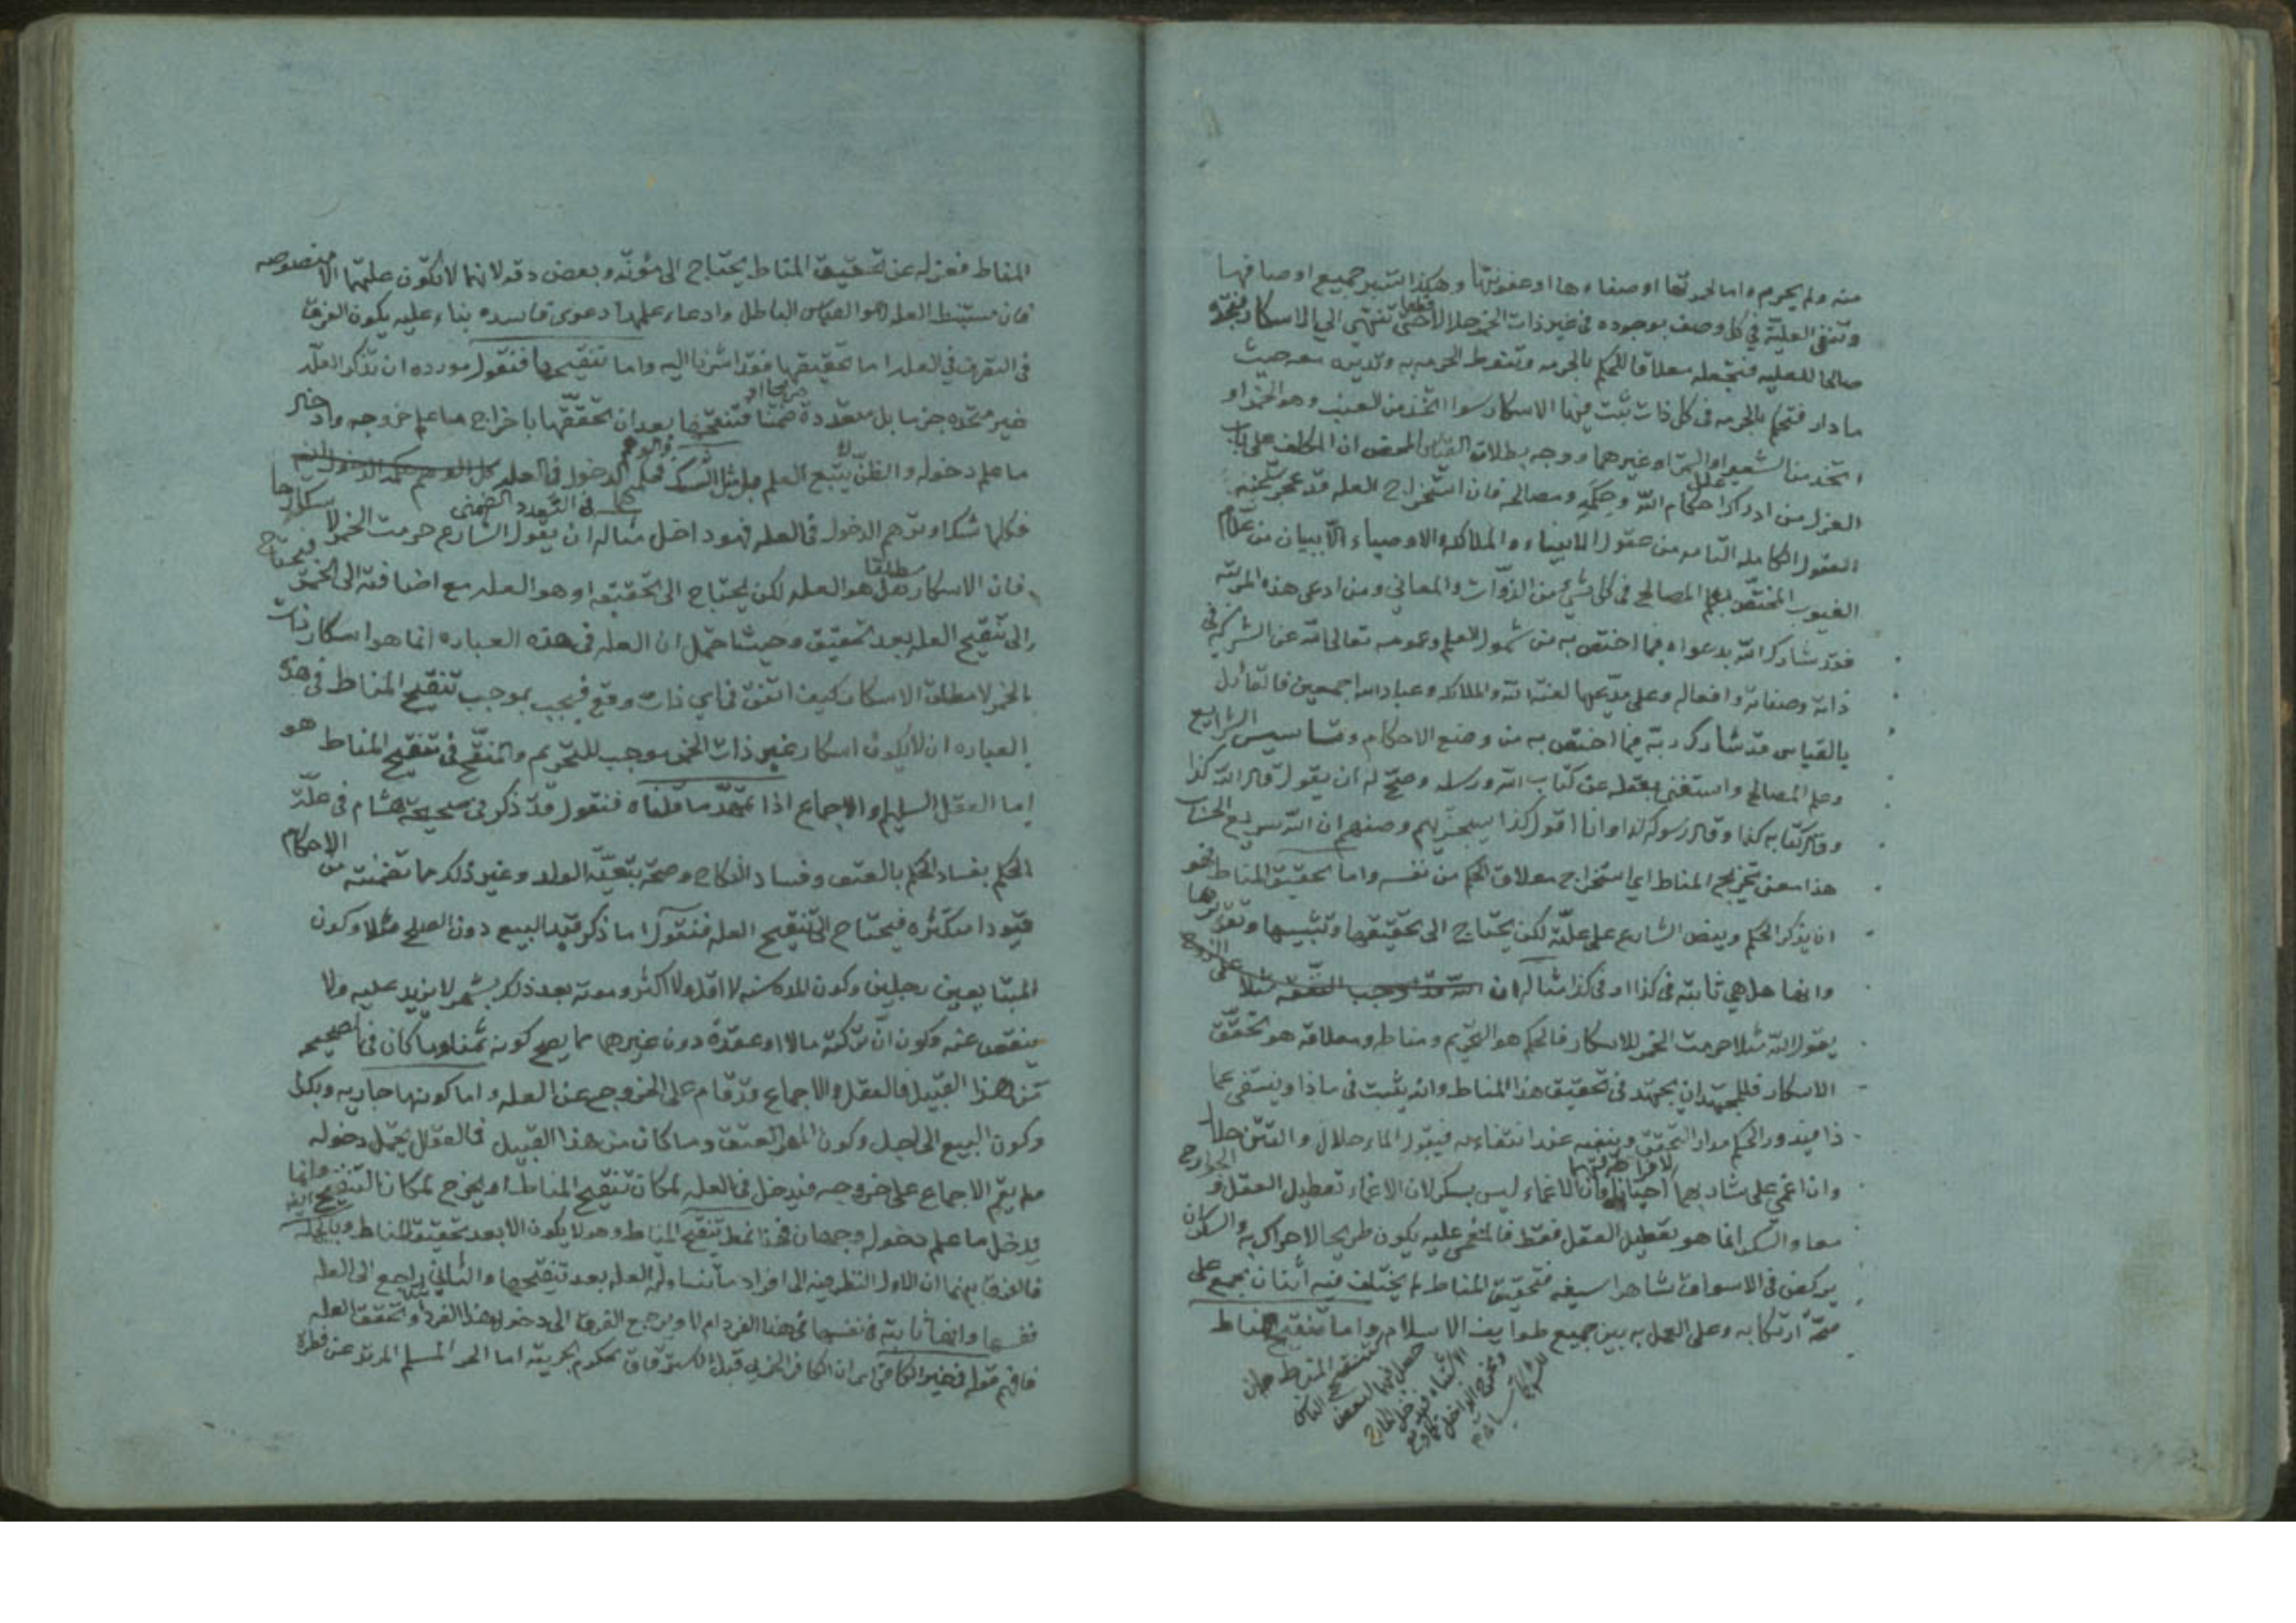 منه ولم يحرم واما لحمرتها او صفاءها او عفونتها وهكذا التدبر جميع اوصافها
وتنفى العلية في كل وصف بوجوده في غير ذات الخمر حلالا قطعا حتى تنتهى الى الاسكار فتجده
صالحا للعليه فتجعله معلاقا للحكم بالحرمه وتنوط الحرمه به وتديره معه حيث
ما دار فتحكم بالحرمه فى كل ذات ثبت فيها الاسكار سوا اتخذ من العنب وهو الخمر او
اتخذ من الشعير او التمر او غيرهما ووجه بطلان القياس المحض ان المكلف على
العزل من ادراك علل احكام الله وحكمه ومصالحه فان استخراج العله قد عجز عنه
العقول الكامله التامه من عقول الانبياء والملائكه والاوصياء الا ببيان من علام
الغيوب المختص بعلم المصالح فى كل شئ من الذوات والمعاني ومن ادعى هذه المرتبه
فقد شارك الله بدعواه فيما اختص به من شمول العلم وعمومه تعالى الله عن الشركه فى
ذاته وصفاته وافعاله وعلى مدعيها لعنة الله والملائكه وعباد الله اجمعين فالقائل
بالقياس قد شارك ربه فيما اختص به من وضع الاحكام وتاسيس الشرايع
وعلم المصالح واستغنى بعقله عن كتاب الله ورسله وصح له ان يقول قال الله كذا
وقال كتابه كذا وقال رسوله كذا وانا اقول كذا سيجزيهم وصفهم ان الله سريع الحساب
هذا معنى تخريج المناط اي استخراج معلاق الحكم من نفسه واما تحقيق المناط فهو
ان يذكر الحكم وينص الشارع على علته لكن يحتاج الى تحقيقها وتثبيتها وتقررها
وانها هل هي ثابته فى كذا او فى كذا مثاله ان الله قد اوجب النفقه مثلا على الزوج
يقول الله مثلا حرمت الخمر للاسكار فالحكم هو التحريم ومناطه ومعلاقه هو تحقق
الاسكار فللمجتهد ان يجتهد فى تحقيق هذا المناط وانه يثبت فى ماذا وينتفى عما
ذا فيدور الحكم مدار التحقق وينفيه عند انتفاءه فيقول الماء حلال والقتن حلال
وان اغمى على شاربهما احيانا لافراط شربهما فان الاغماء ليس بسكر لان الاغماء تعطيل العقل والجوارح
معا والسكر انما هو تعطيل العقل فقط فالمغمى عليه يكون طريحا لا حراك به والسكران
يركض فى الاسواق شاهرا سيفه فتحقيق المناط لم يختلف فيه اثنان بجمع على
صحة ارتكابه وعلى العمل به بين جميع طوايف الاسلام واما تنقيح المناط
المناط فعزله عن تحقيق المناط يحتاج الى مؤنه وبعض دقه لانها لا تكون علتها الا منصوصه
فان مستنبط العله هو القياس الباطل وادعاء علمها دعوى فاسده بناء عليه يكون الفرق
فى التصرف في العله اما تحقيقها فقد اشرنا اليه واما تنقيحها فنقول مورده ان تذكر العله
غير متحده جزما بل متعددة صريحا او ضمنا فتنقحها بعد ان تحققها باخراج ما علم خروجه وادخال
ما علم دخوله والظن يتبع العلم بل مثل الشك والوهم فحكمه الدخول فى العله
فكلما شك او توهم الدخول فى العله فهو داخل مثاله فى التعدد الضمنى ان يقول الشارع حرمت الخمر لاسكارها
فان الاسكار مطلقا هل هو العله لكن يحتاج الى تحقيقه او هو العله مع اضافته الى الخمر فيحتاج
الى تنقيح العله بعد تحقيق وحيث احتمل ان العله فى هذه العباره انما هو اسكار ذات
الخمر لا مطلق الاسكار كيف اتفق فى اي ذات وقع فيجب بموجب تنقيح المناط فى هذه
العباره ان لا يكون اسكار غير ذات الخمر موجب للتحريم والمنقح فى تنقيح المناط هو
اما العقل السليم او الاجماع اذا تمهد ما قلناه فنقول قد ذكر فى صحيحة هشام فى علة
الحكم بفساد الحكم بالعتق وفساد النكاح وصحة بتعية الولد وغير ذلك مما تضمنته من الاحكام
قيودا متكثره فيحتاج الى تنقيح العله فنقول اما ذكر قيد البيع دون الصلح مثلا وكون
المتبايعين رجلين وكون المده سنه لا اقل ولا اكثر وموته بعد ذلك بشهر لا يزيد عليه ولا
ينقص عنه وكون ان تركته مالا او عقدة دون غيرهما مما يصح كونه ثمنا وما كان فى الصحيحه
من هذا القبيل فالعقل والاجماع قد قام على الخروج عن العله واما كونها جاريه وبكرا
وكون البيع الى اجل وكون المهر العتق وما كان من هذا القبيل فالعقل يحتمل دخوله
ولم يقم الاجماع على خروجه فيدخل فى العله لمكان تنقيح المناط او يخرج لمكان التنقيح ايضا وانما
يدخل ما علم دخوله وجهان فخذ نمط تنقيح المناط وهو لا يكون الا بعد تحقيق المناط وبالجمله
فالفرق بينهما ان الاول النظر فيه الى افراد ما تتناوله العله بعد تنقيحها والثاني يراجع الى العله
نفسها وانها ثابته فى نفسها فى هذا الفرد ام لا ويرجع الفرق الى دخول هذا الفرد او تحقق العله
فافهم قوله فى خير الكافرين ان الكافر الحربي قبل الاسترقاق محكوم بحريته اما الحر المسلم المرتد عن فطرة